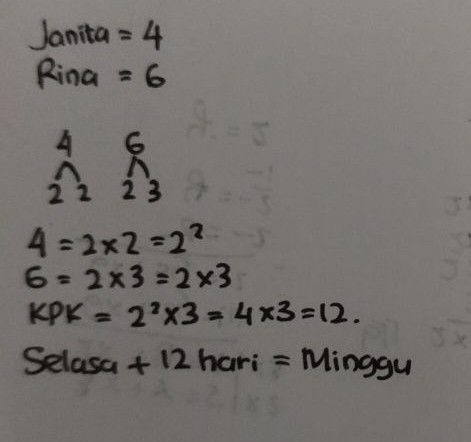 Janita = 4
Rina = 6
4 6
2 2 2 3
4 = 2 x 2 = 2²
6 = 2 x 3 = 2 x 3
KPK = 2² x 3 = 4 x 3 = 12.
Selasa + 12 hari = Minggu